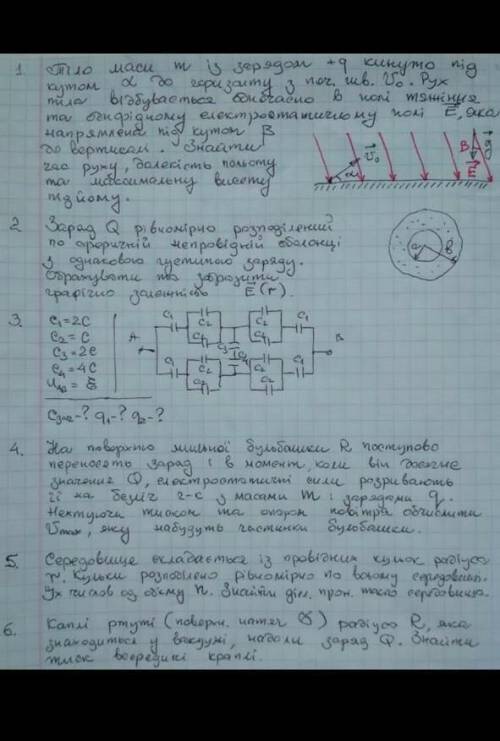 1. Тіло маси m із зарядом +q кинуто під
кутом α до горизонту з поч. шв. V₀. Рух
тіла відбувається одночасно в полі тяжіння
та однорідному електростатичному полі E⃗, яка
напрямлена під кутом β
до вертикалі. Знайти
час руху, далекість польоту
та максимальну висоту
підйому.
V⃗₀
α
β
E⃗
g⃗
2. Заряд Q рівномірно розподілений
по сферичній непровідній оболонці
з однаковою густиною заряду.
Обрахувати та зобразити
графічно залежність E⃗(r).
a
b
3. C₁=2C
C₂=C
C₃=2C
C₄=4C
U_AB=
C_заг-? q₁-? q₂-?
A
B
C₁ C₂ C₂ C₁
C₃
C₄
C₁ C₂ C₂ C₁
4. На поверхню мильної бульбашки R поступово
переносять заряд і в момент, коли він досягне
значення Q, електростатичні сили розривають
її на безліч ч-к з масами m і зарядами q.
Нехтуючи тиском та опором повітря обчислити
Vmax, яку набудуть частинки бульбашки.
5. Середовище складається із провідних кульок радіуса
r. Кульки розподілено рівномірно по всьому середовищі.
Їх число в од. об'єму n. Знайти діел. прон. такого середовища.
6. Каплі ртуті (поверхн. натяг) радіуса R, яка
знаходиться у вакуумі, надали заряд Q. Знайти
тиск всередині краплі.